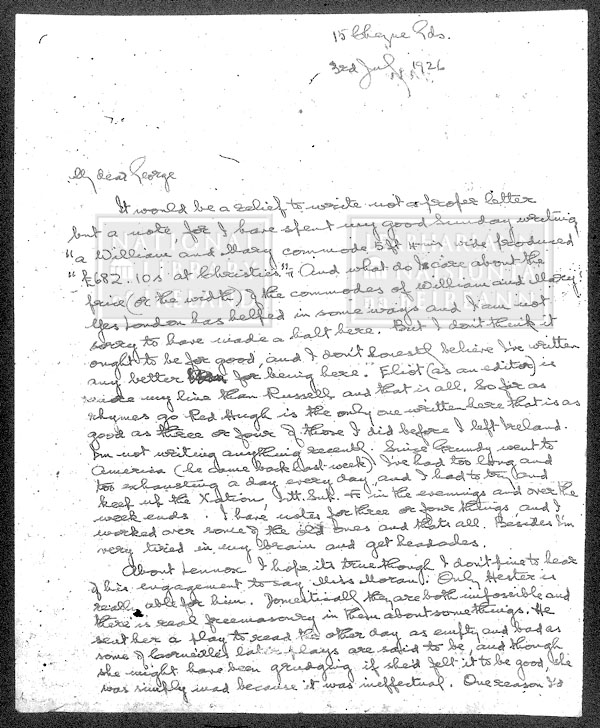 15 Cheyne Gds.
3rd July 1926
My dear George
It would be a relief to write not a proper letter
but a note, for I have spent my good Sunday writing
"a William and Mary commode 5ft wide produced
"£682.10s at Christies". And what do I care about the
price (or the width) of the commodes of William and Mary
Yes London has helped in some ways and I am not
sorry to have made a halt here. But I don't think it
ought to be for good, and I don't honestly believe I've written
any better for being here. Eliot (as an editor) is
more my line than Russell and that is all. So far as
rhymes go Red Hugh is the only one written here that is as
good as three or four of those I did before I left Ireland.
I'm not writing anything recently. Since Grundy went to
America (he came back last week) I've had too long and
too exhausting a day every day, and I had to try and
keep up the Nation, Litt. Sup. in the evenings and over the
week ends. I have notes for three or four things, and I
worked over some of the old ones and thats all. Besides I'm
very tired in my brain and get headaches.
About Lennox. I hope its true though I don't pine to hear
of his engagement to say Miss Moran. Only Hester is
really able for him. Domestically they are both impossible and
there is real freemasonry in them about some things. He
sent her a play to read the other day as empty and bad as
some of Corneille's later plays are said to be, and though
she might have been grudging if she'd felt it to be good, she
was simply mad because it was ineffectual. One reason I'd